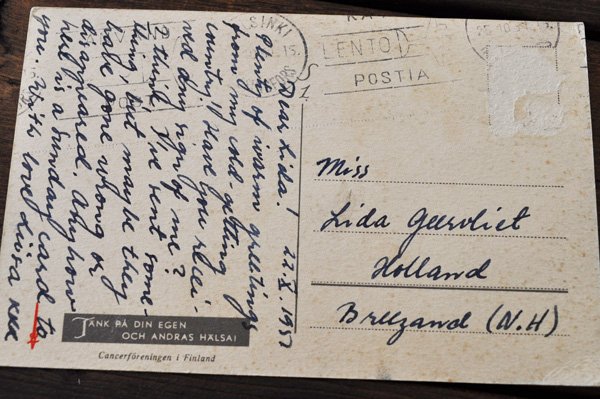 SINKI
15.
FORS
LENTO
POSTIA
10.
15.
Dear Lida! 22.X.1957
Plenty of warm greetings
from my cold-getting
country! Have you recei-
ved any sign of me?
I think I've sent some-
thing but maybe they
have gone wrong or
disappeared. Anyhow
here is a Sunday card to
you. With love Liisa xxx
Miss
Lida Geervliet
Holland
Breezand (N.H)
TÄNK PÅ DIN EGEN
OCH ANDRAS HÄLSA!
Cancerföreningen i Finland